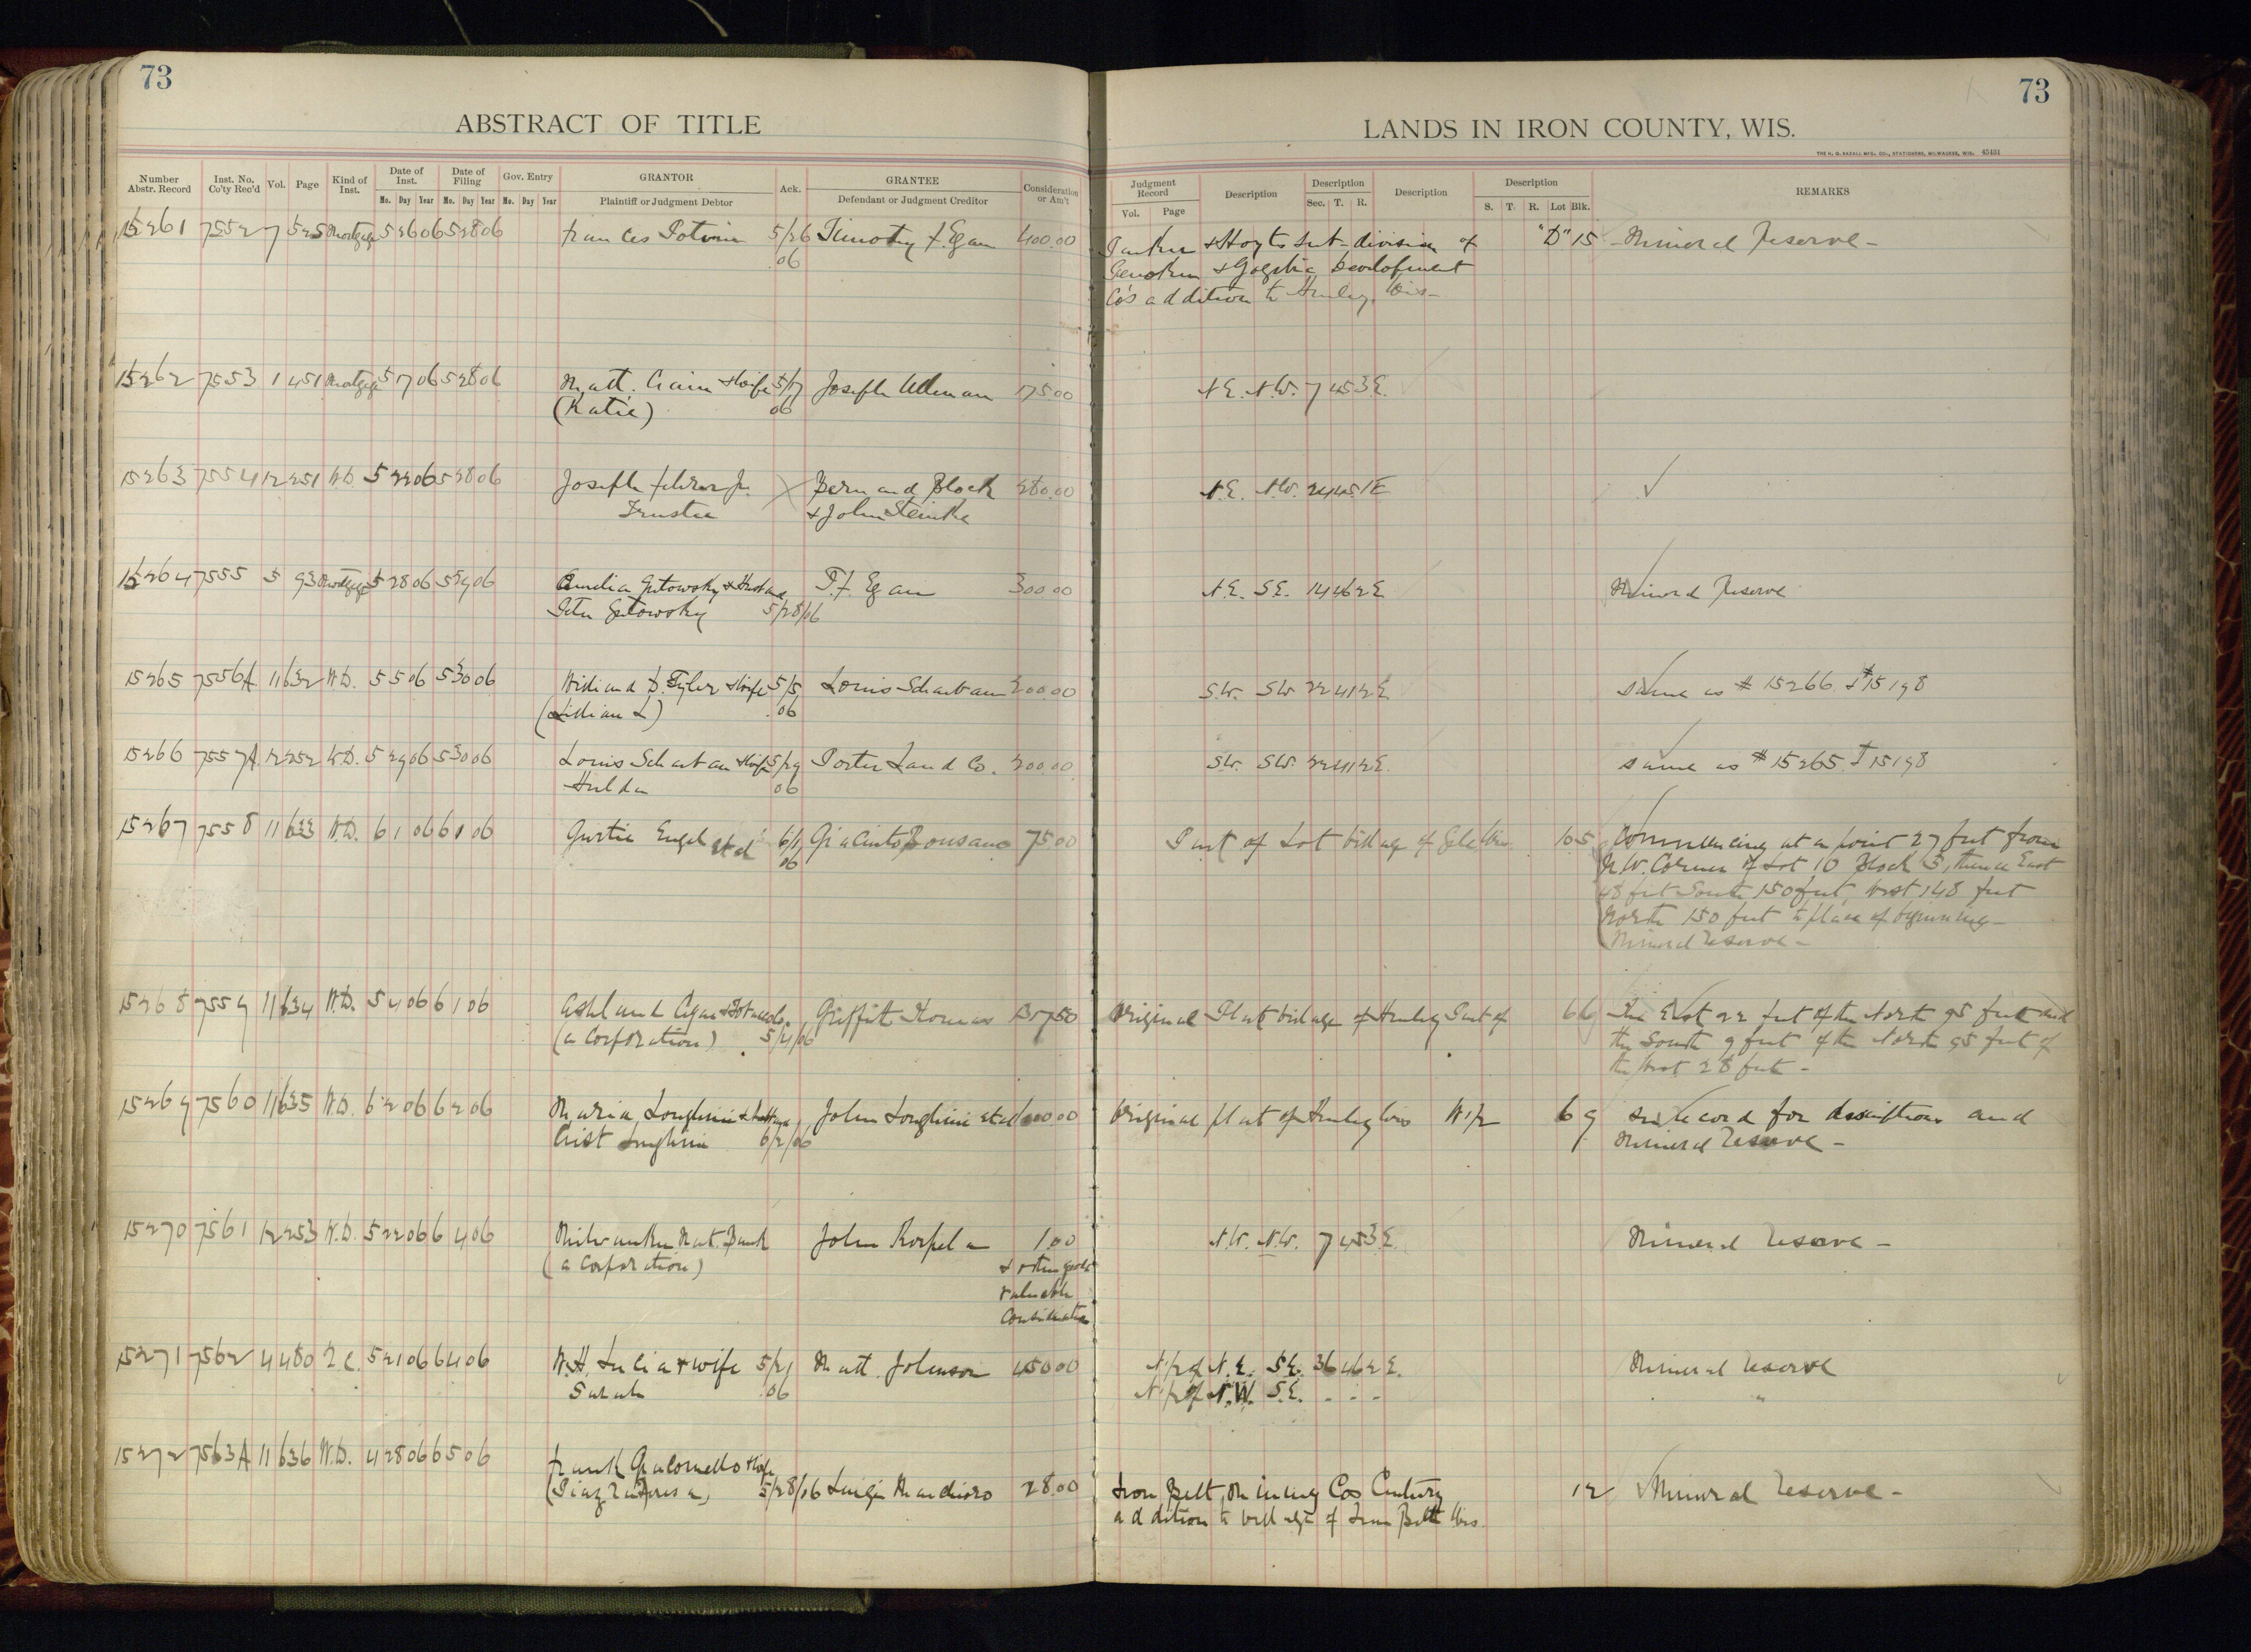 73
ABSTRACT OF TITLE
Number Abstr. Record
Inst. No. Co'ty Rec'd
Vol.
Page
Kind of Inst.
Date of Inst.
Mo. Day Year
Date of Filing
Mo. Day Year
Gov. Entry
Mo. Day Year
GRANTOR
Plaintiff or Judgment Debtor
Ack.
GRANTEE
Defendant or Judgment Creditor
Consideration or Am't
15261 7552 7 525 Mortgage 5 26 06 5 28 06 Frances Potvin 5/26 Timothy F. Egan 400.00
06
15262 7553 1 451 Mortgage 5 17 06 5 28 06 Matt. & Wife 5/17 Joseph 175.00
(Katie) 06
15263 7554 12 251 W.D. 5 22 06 5 28 06 Joseph Jr. Bernard Block 280.00
Trustee & John Steinke
15264 7555 5 93 Mortgage 5 28 06 5 29 06 Gutowsky & Husband T.F. Egan 300.00
Peter Gutowsky 5/28/06
15265 7556A 11 632 W.D. 5 5 06 5 30 06 D. Tyler & Wife 5/5 Louis 200.00
(Lillian L) 06
15266 7557A 12 252 W.D. 5 29 06 5 30 06 Louis & Wife 5/29 Porter Land Co. 200.00
Hulda 06
15267 7558 11 633 W.D. 6 1 06 6 1 06 Engel et al 6/1 75.00
06
15268 7559 11 634 W.D. 5 4 06 6 1 06 Ashland Cigar & Tobacco Co. Griffith Thomas
(a Corporation) 5/4/06
15269 7560 11 635 W.D. 6 2 06 6 2 06 Maria & Husband John et al
6/2/06
15270 7561 12 253 W.D. 5 22 06 6 4 06 Milwaukee Nat. Bank John Korpela 1.00
(a Corporation) & other good
valuable
Consideration
15271 7562 4 480 5 21 06 6 4 06 W.H. & wife 5/21 Matt. Johnson 450.00
Sarah 06
15272 7563A 11 636 W.D. 4 28 06 6 5 06 Frank & Wife
5/28/06 Luigi 28.00
73
LANDS IN IRON COUNTY, WIS.
THE H. G. RAZALL MFG. CO., STATIONERS, MILWAUKEE, WIS. 45431
Judgment Record
Vol. Page
Description
Description
Sec. T. R.
Description
Description
S. T. R. Lot Blk.
REMARKS
& Hoyts Sub-division of "D" 15 - Mineral Reserve -
& Gogebic Development
Co's addition to Hurley, Wis -
N.E. N.W. 7 45 3 E.
N.E. N.W. 24 45 1 E
N.E. S.E. 14 46 2 E Mineral Reserve
S.W. SW 22 41 2 E Same as # 15266 & # 15198
S.W. SW. 22 41 2 E. Same as # 15265 & 15198
Part of Lot Village of Gile Wis. 10 5 Commencing at a point 27 feet from
N.W. Corner of Lot 10 Block 5, thence East
48 feet South 150 feet, West 148 feet
North 150 feet to place of beginning -
Mineral Reserve -
Original Plat Village of Hurley Part of 6 6 The East 22 feet of the North 95 feet and
the South 9 feet of the North 95 feet of
the West 28 feet -
Original plat of Hurley Wis W 1/2 6 9 See record for description and
Mineral Reserve -
N.W. N.W. 7 45 3 E. Mineral Reserve -
N 1/2 of N.E. S.E. 36 46 2 E. Mineral Reserve
N 1/2 of N.W. S.E. - - - "
Iron Belt Mining Cos Century 12 Mineral Reserve -
addition to Village of Iron Belt Wis.